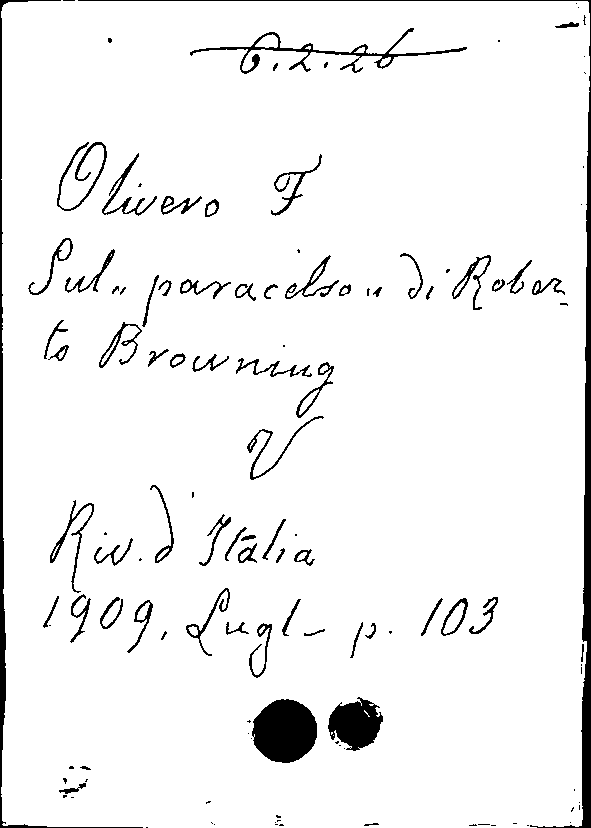 6.2.26
Olivero F
Sul „ paracelso „ di Rober-
to Browning
V
Riv. d'Italia
1909, Lugl- p. 103